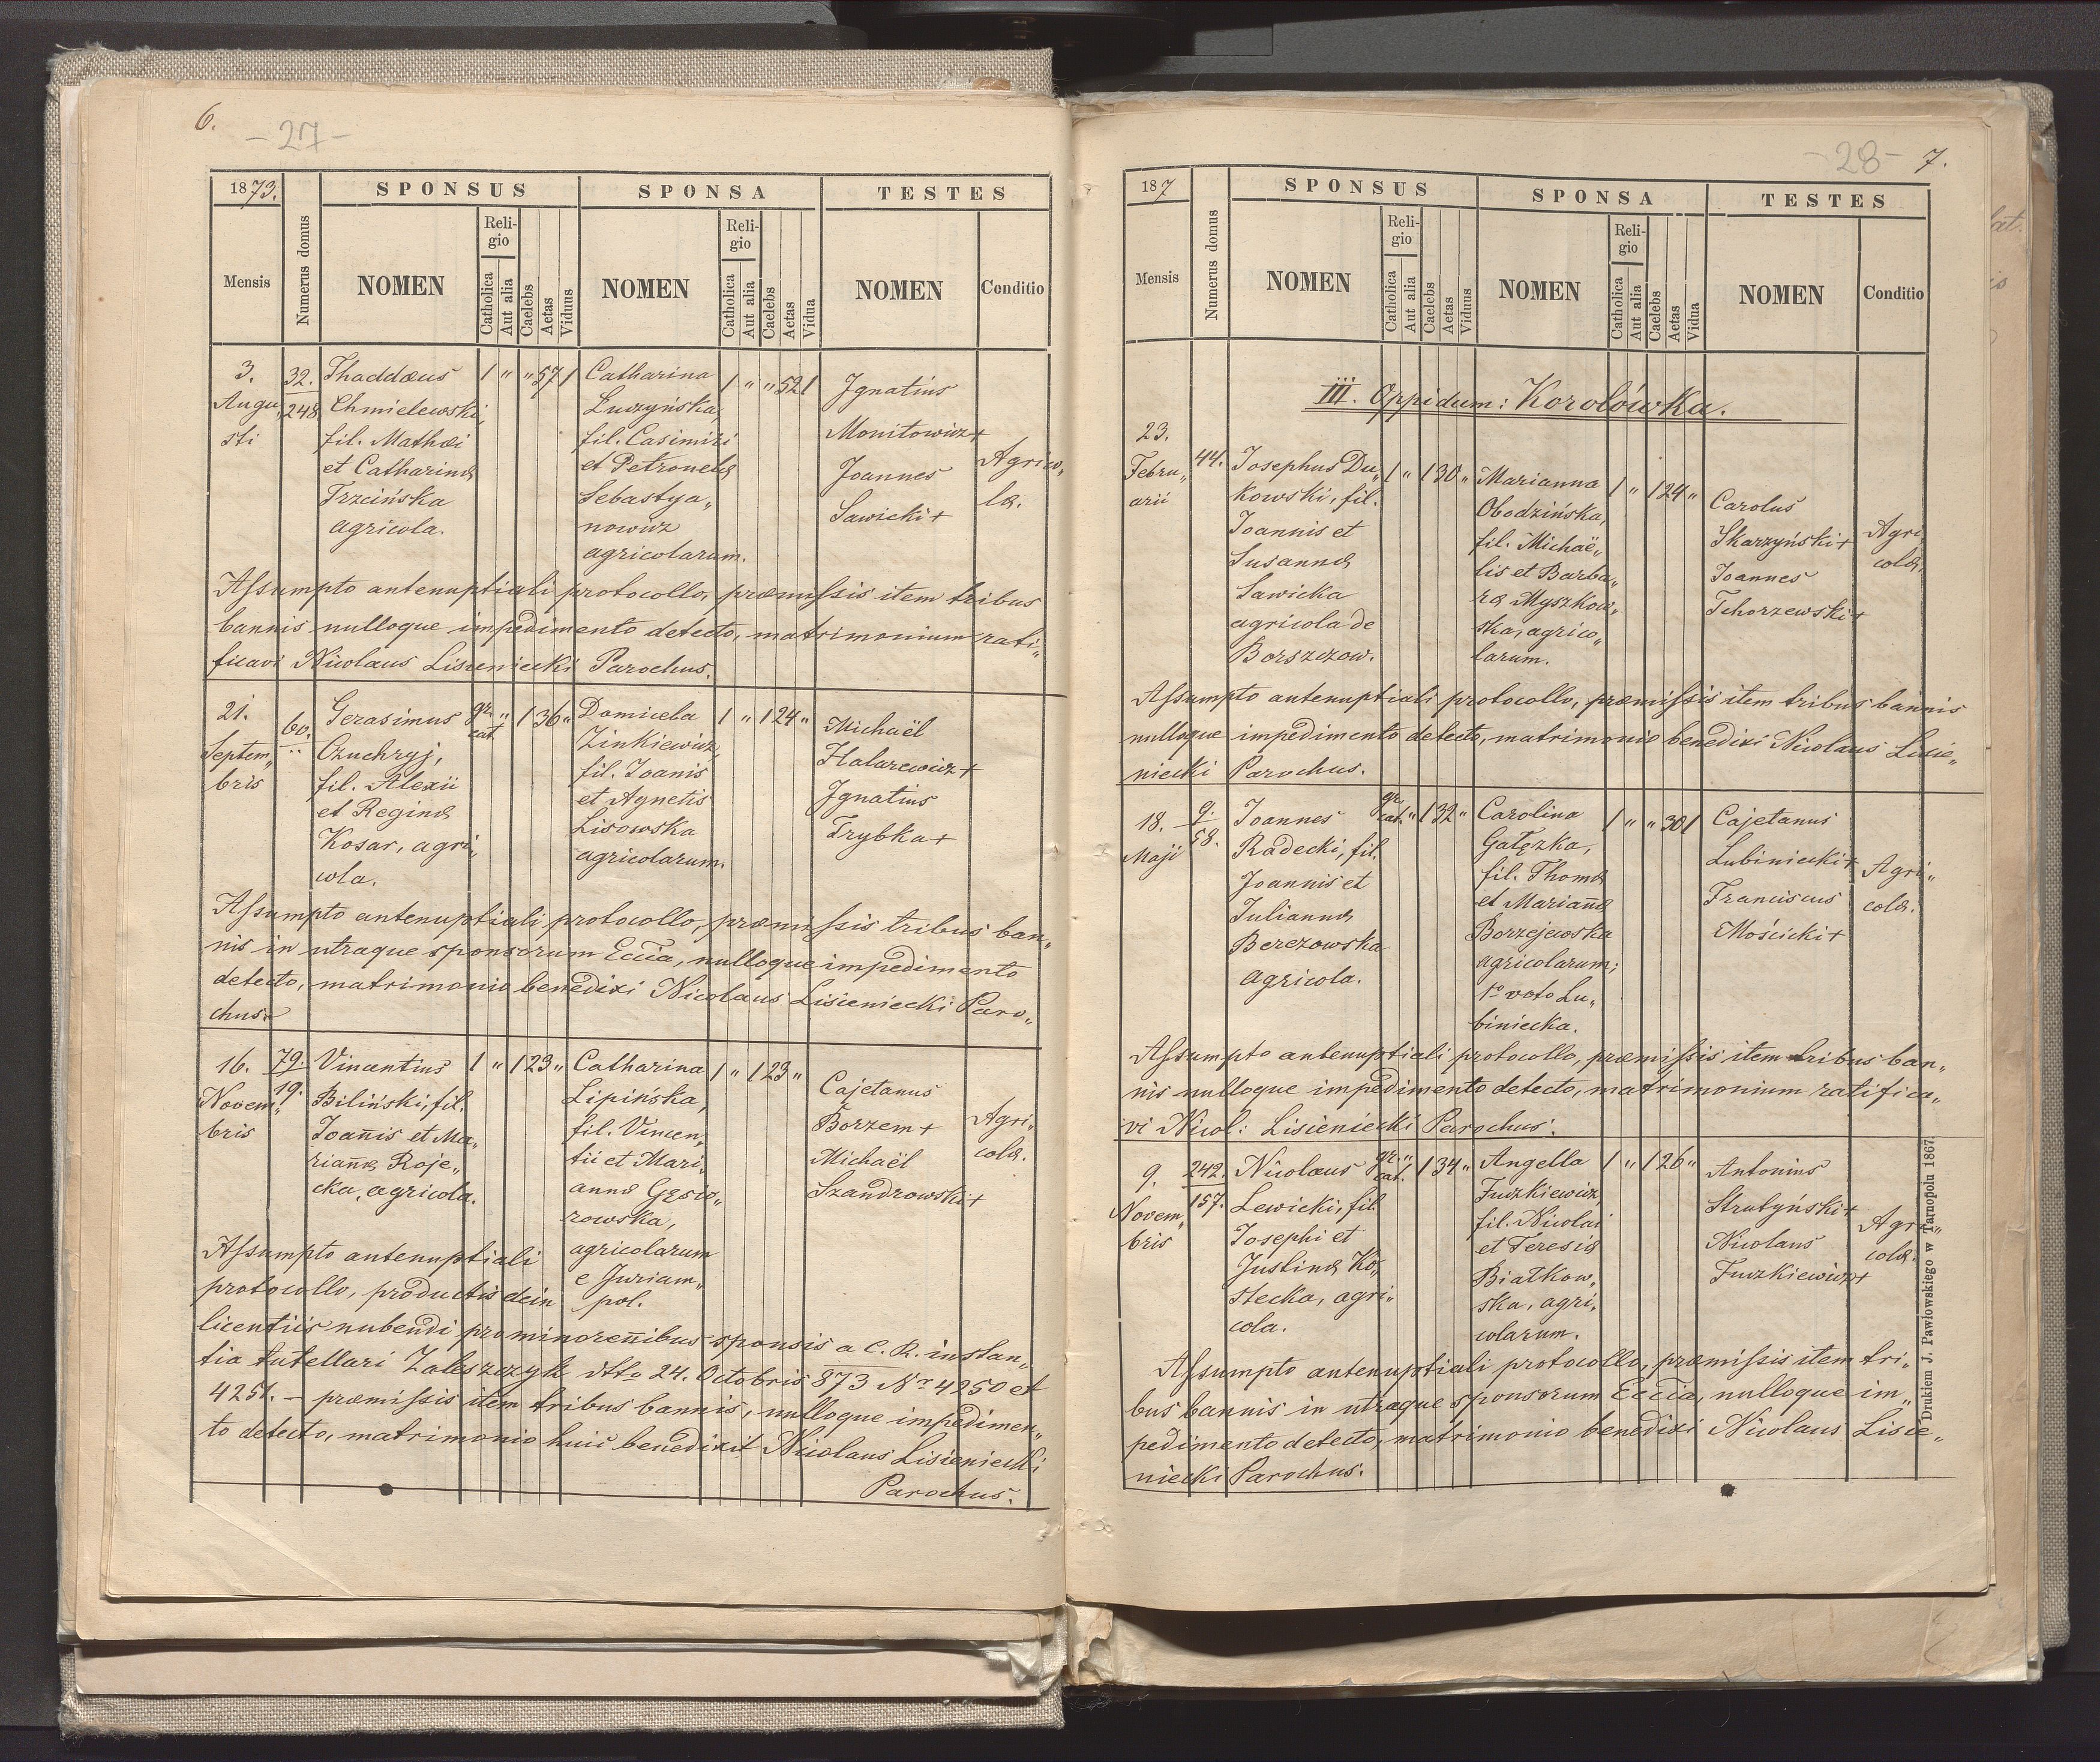 6.
- 27 -
1873.
SPONSUS
SPONSA
TESTES
Mensis
Numerus domus
NOMEN
Religio
Catholica
Aut alia
Caelebs
Aetas
Viduus
NOMEN
Religio
Catholica
Aut alia
Caelebs
Aetas
Vidua
NOMEN
Conditio
3. Augusti
32.
248
Thaddæus 1 " " 57 1
Chmielewski,
fil. Mathæi
et Catharinæ
Trzcińska
agricola.
Catharina 1 " " 52 1
Luczyńska,
fil. Casimiri
et Petronelæ
Sebastya„
nowicz
agricolarum.
Ignatius
Monitowicz +
Joannes
Sawicki +
Agrico„
læ.
Assumpto antenuptiali protocollo, præmissis item tribus
bannis nulloque impedimento detecto, matrimonium rati„
ficavi Nicolaus Lisieniecki Parochus.
21.
Septem„
bris
60.
Gerasimus gr. cat. " 1 36 "
Ozuchryj,
fil. Alexii
et Reginæ
Kosar, agri„
cola.
Domicela 1 " 1 24 "
Zinkiewicz,
fil. Joanis
et Agnetis
Lisowska
agricolarum.
Michaël
Halarewicz +
Ignatius
Trybka +
Assumpto antenuptiali protocollo, præmissis tribus ban„
nis in utraque sponsorum Eccia, nulloque impedimento
detecto, matrimonio benedixi Nicolaus Lisieniecki Paro„
chus.
16.
Novem„
bris
79.
19.
Vincentius 1 " 1 23 "
Biliński, fil.
Joannis et Ma„
riannæ Roje„
cka, agricola.
Catharina 1 " 1 23 "
Lipińska,
fil. Vincen„
tii et Mari„
annæ Gęsio„
rowska,
agricolarum
e Juriam„
pol.
Cajetanus
Borzem +
Michaël
Szandrowski +
Agri„
colæ.
Assumpto antenuptiali
protocollo, productis dein
licentiis nubendi pro minorennibus sponsis a C. R. instan„
tia tutellari Zaleszczyk dtto 24. Octobris 873 Nr 4250 et
4251. – præmissis item tribus bannis, nulloque impedimen„
to detecto, matrimonio huic benedixit Nicolaus Lisieniecki
Parochus.
- 28 - 7.
187
SPONSUS
SPONSA
TESTES
Mensis
Numerus domus
NOMEN
Religio
Catholica
Aut alia
Caelebs
Aetas
Viduus
NOMEN
Religio
Catholica
Aut alia
Caelebs
Aetas
Vidua
NOMEN
Conditio
III. Oppidum: Korolówka.
23.
Febru„
arii
44.
Josephus Du„ 1 " 1 30 "
kowski, fil.
Joannis et
Susannæ
Sawicka
agricola de
Borszczow.
Marianna 1 " 1 24 "
Obodzińska,
fil. Michaë„
lis et Barba„
ræ Myszkow„
ska, agrico„
larum.
Carolus
Skarzyński +
Joannes
Tchorzewski +
Agri„
colæ.
Assumpto antenuptiali protocollo, præmissis item tribus bannis
nulloque impedimento detecto, matrimonio benedixi Nicolaus Lisie„
niecki Parochus.
18.
Maji
9.
58.
Joannes gr. cat. " 1 32 "
Radecki, fil.
Joannis et
Juliannæ
Berezowska
agricola.
Carolina 1 " " 30 1
Gałęzka,
fil. Thomæ
et Mariannæ
Borzejewska
agricolarum;
1º voto Lu„
biniecka.
Cajetanus
Lubiniecki +
Franciscus
Mościcki +
Agri„
colæ.
Assumpto antenuptiali protocollo, præmissis item tribus ban„
nis nulloque impedimento detecto, matrimonium ratifica„
vi Nicol: Lisieniecki Parochus.
9.
Novem„
bris
242.
157.
Nicolaus gr. cat. " 1 34 "
Lewicki, fil.
Josephi et
Justinæ Ko„
stecka, agri„
cola.
Angella 1 " 1 26 "
Juzkiewicz,
fil. Nicolai
et Teresiæ
Białkow„
ska, agri„
colarum.
Antonius
Strutyński +
Nicolaus
Juzkiewicz +
Agri„
colæ.
Assumpto antenuptiali protocollo, præmissis item tri„
bus bannis in utraque sponsorum Eccia, nulloque im„
pedimento detecto, matrimonio benedixi Nicolaus Lisie„
niecki Parochus.
Drukiem J. Pawłowskiego w Tarnopolu 1867.